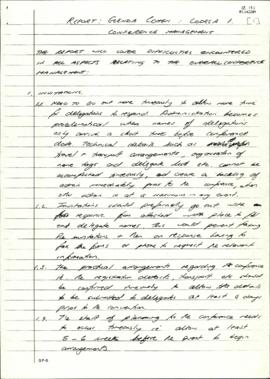 REPORT: GLENDA COHEN: CODESA 1.
CONFERENCE MANAGEMENT
THE REPORT WILL COVER DIFFICULTIES ENCOUNTERED
IN ALL ASPECTS RELATING TO THE OVERALL CONFERENCE
MANAGEMENT:
1. INVITATIONS.
Need to go out more timeously to allow more time
for delegations to respond. Administration becomes
problematical when names of delegations
only arrive a short time before conference
date. Technical details such as
travel + transport arrangements, organisation of
name tags and delegate lists etc. cannot be
accomplished timeously, and create a backlog of
admin immediately prior to the conference, when
admin is at a maximum in any event.
1.2. Invitations should preferably go out with
response form attached with place to fill
out delegate names. This would prevent faxing
the invitation + then on response having to
fax the forms or phone to request the relevant
information.
1.3. The practical arrangements regarding the conference
ie the registration details, transport etc should
be confirmed timeously to allow the details
to be submitted to delegates at least 2 days
prior to the convention.
1.4. The start of planning to the conference needs
to occur timeously ie allow at least
5 - 6 weeks before the event to begin
arrangements.